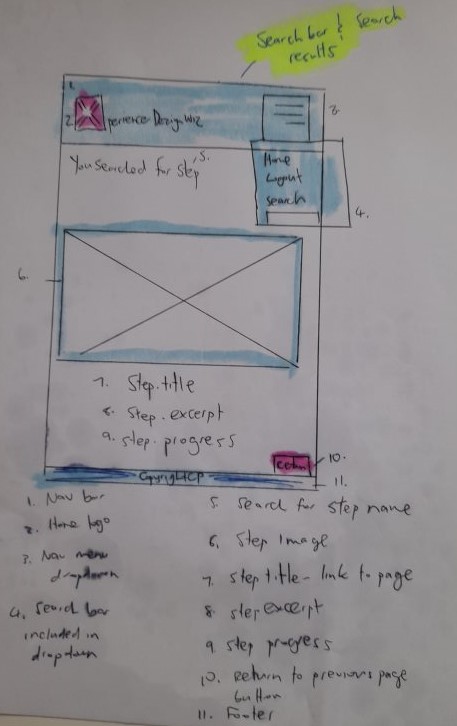 Search bar & Search
results
1.
2. xperience Design Wiz
3.
You Searched for Step
5.
Home
Logout
Search
4.
6.
7. Step.title
8. Step.excerpt
9. Step.progress
return
10.
Copyright CP
11.
1. Nav bar
2. Home logo
3. Nav menu
dropdown
4. Search bar
included in
dropdown
5. Search for step name
6. Step Image
7. step title - link to page
8. step excerpt
9. step progress
10. Return to previous page
button
11. Footer